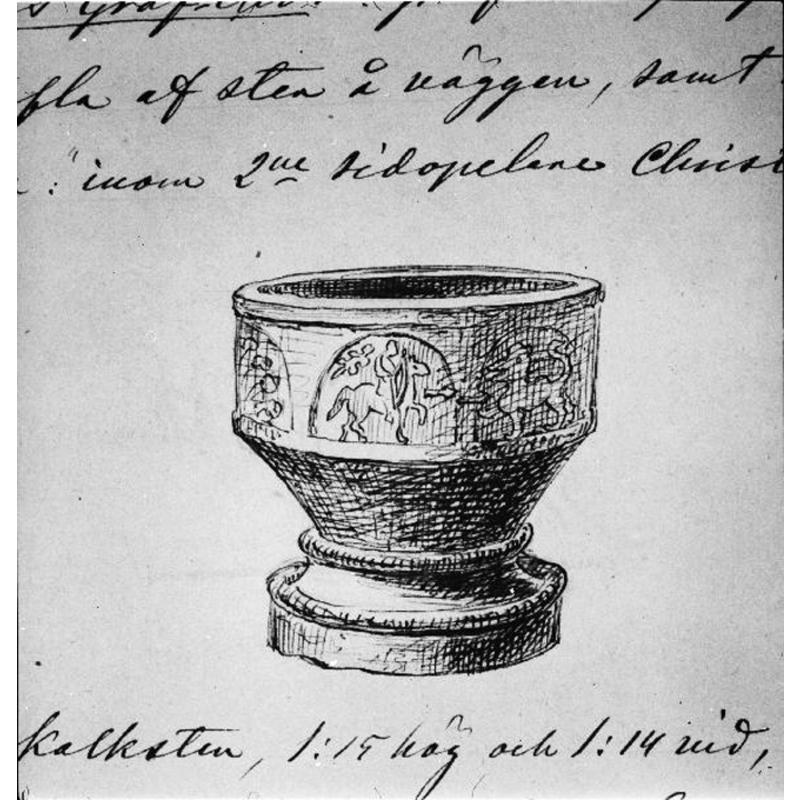 fla af sten å väggen, samt
inom 2ne sidopelare Chris
kalksten, 1:15 hög och 1:14 vid,